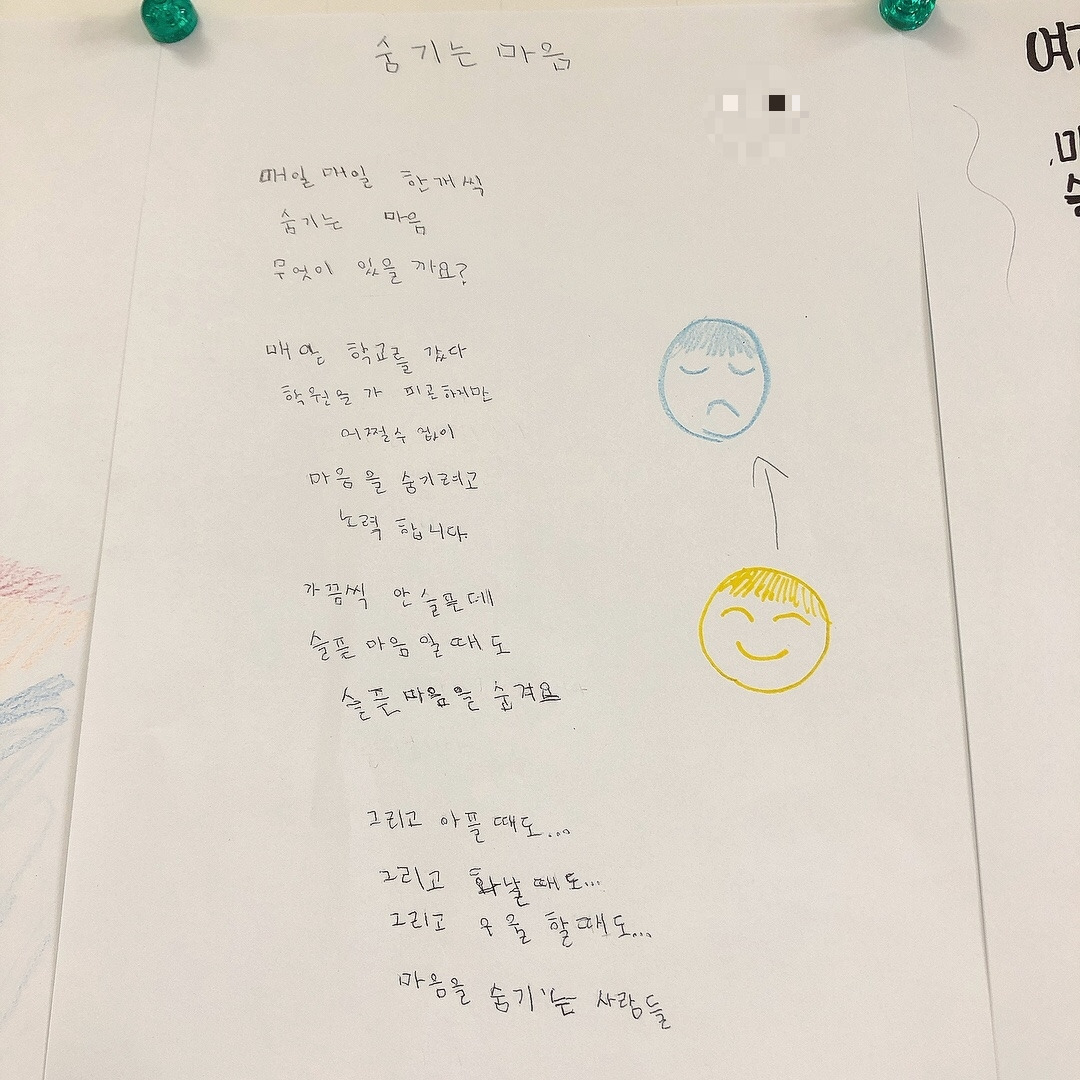 숨기는 마음
매일매일 한개씩
숨기는 마음
무엇이 있을 까요?
매일 학교를 갔다
학원을 가 피곤하지만
어쩔수 없이
마음을 숨기려고
노력 합니다.
가끔씩 안 슬픈데
슬픈 마음 일때도
슬픈마음을 숨겨요
그리고 아플때도...
그리고 화날때도...
그리고 우울 할때도...
마음을 숨기는 사람들
여